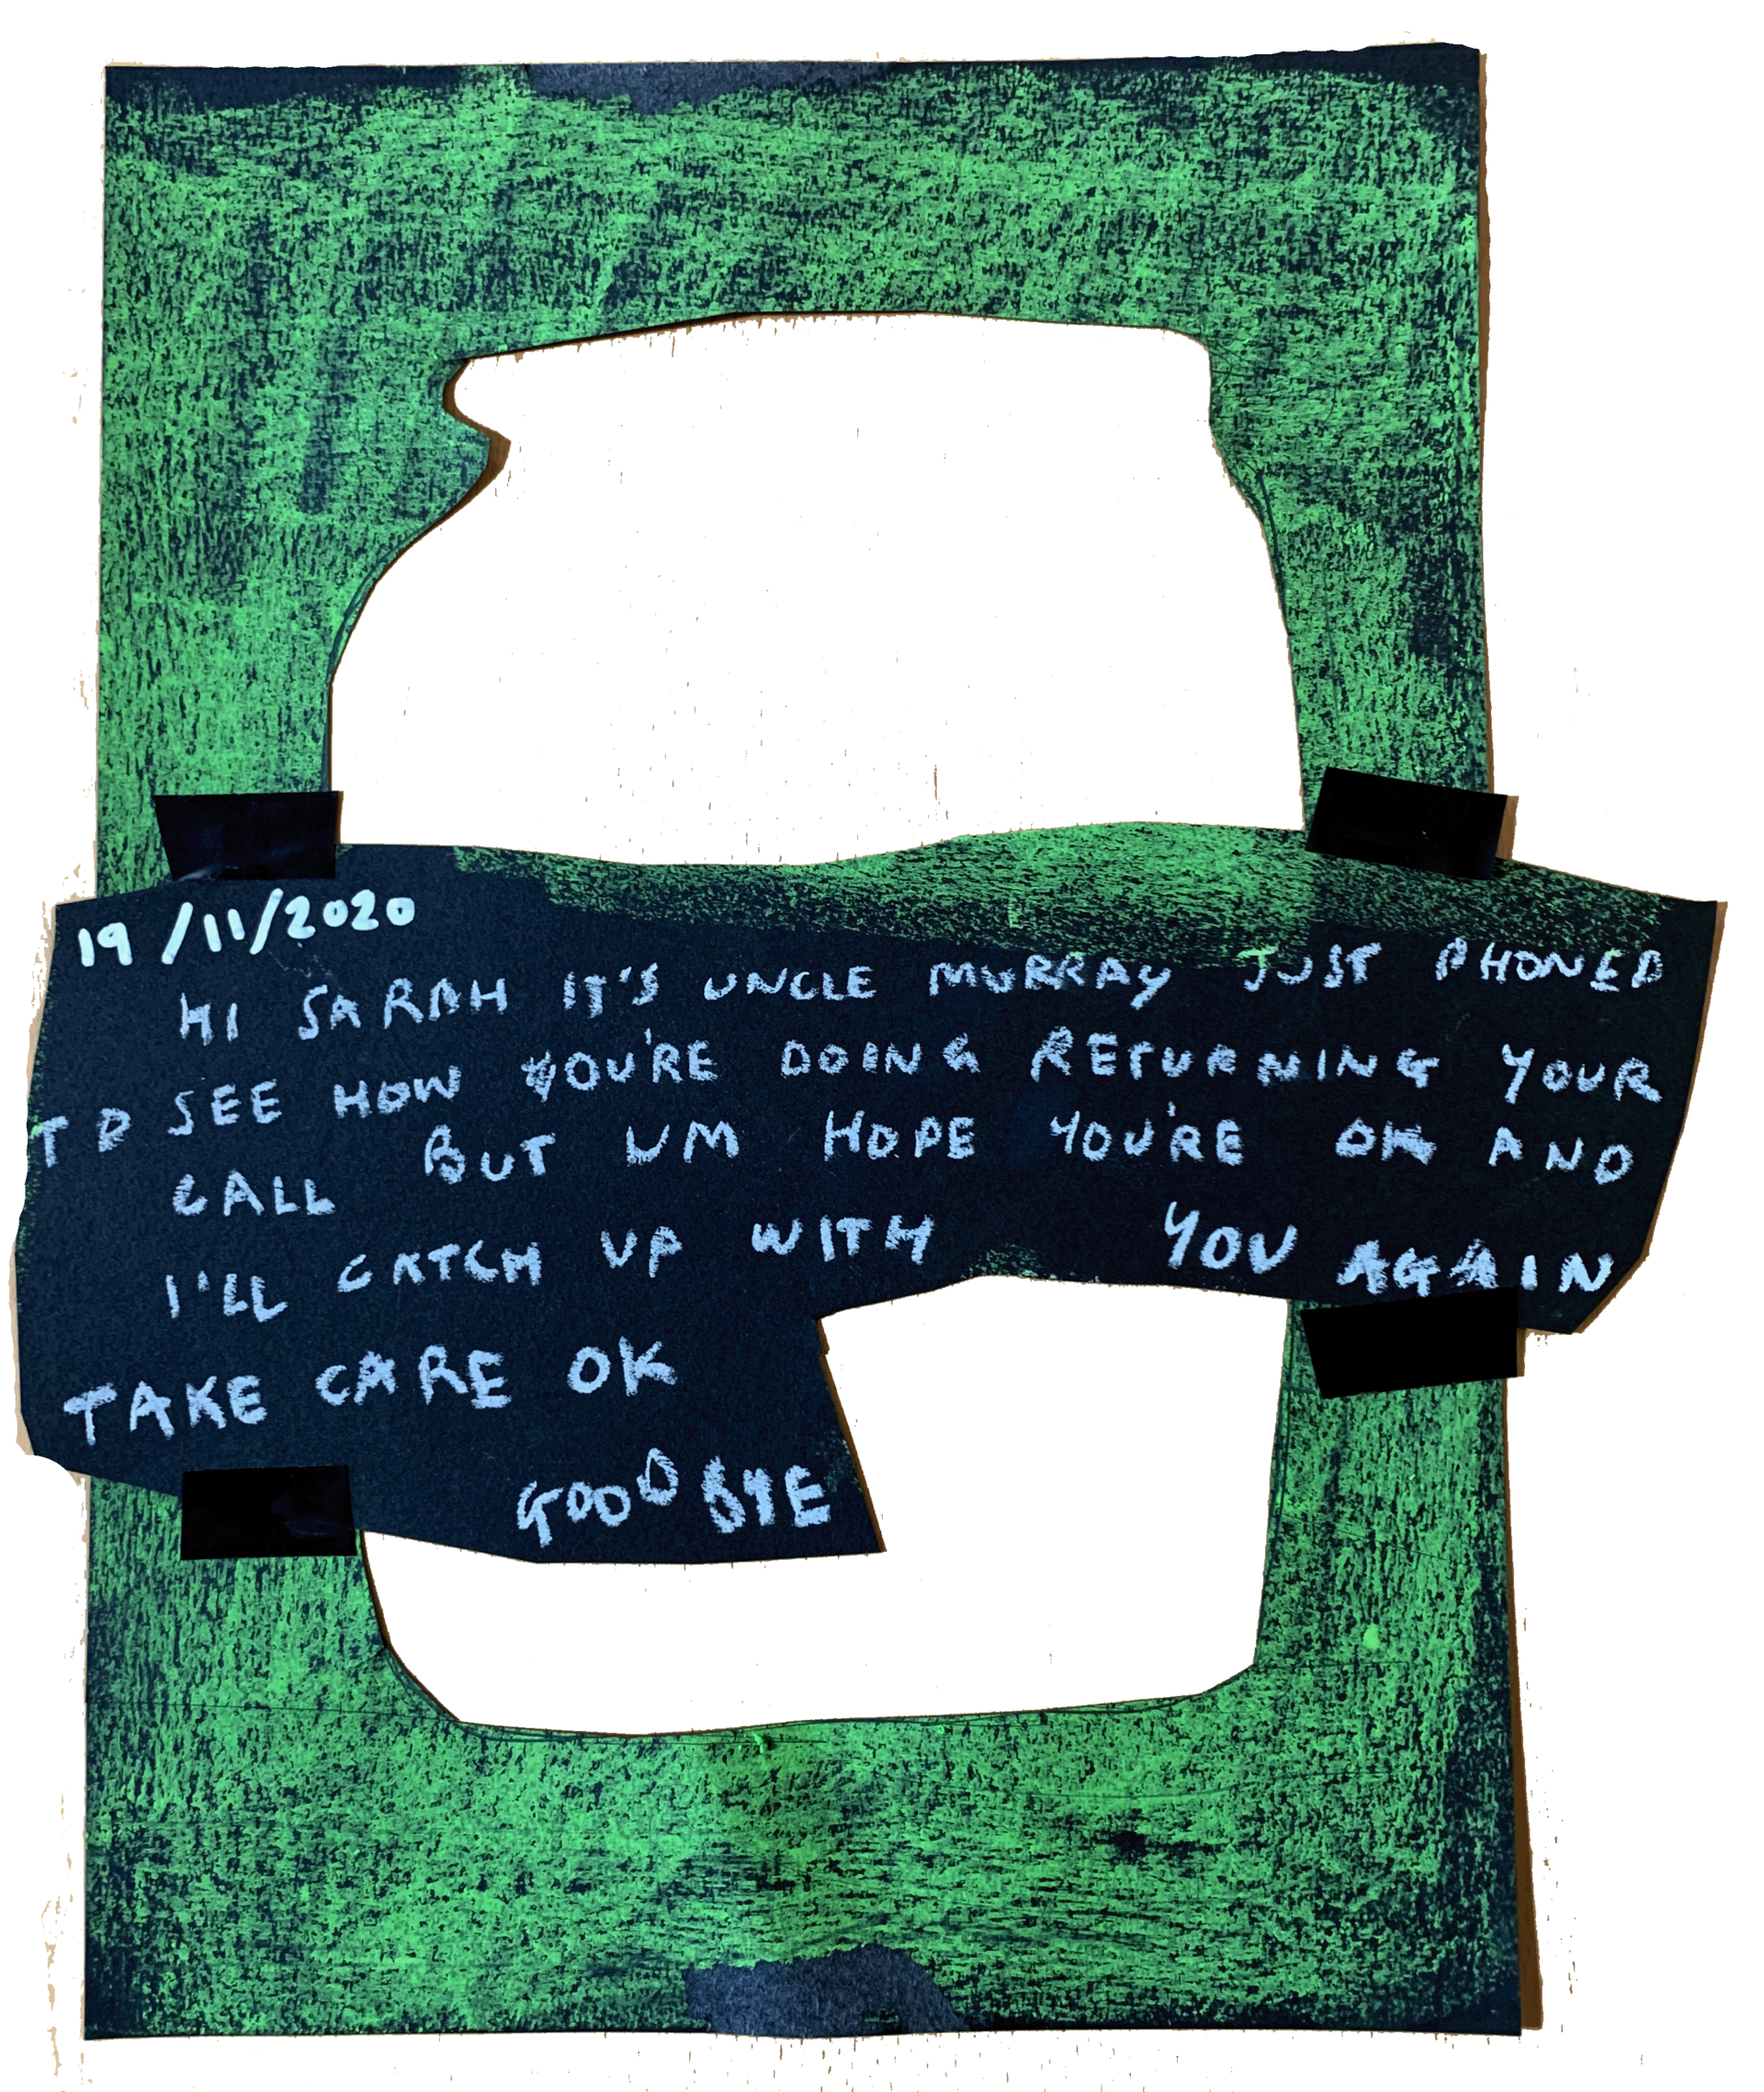 19/11/2020
HI SARAH IT'S UNCLE MURRAY JUST PHONED
TO SEE HOW YOU'RE DOING RETURNING YOUR
CALL BUT UM HOPE YOU'RE OK AND
I'LL CATCH UP WITH YOU AGAIN
TAKE CARE OK
GOODBYE